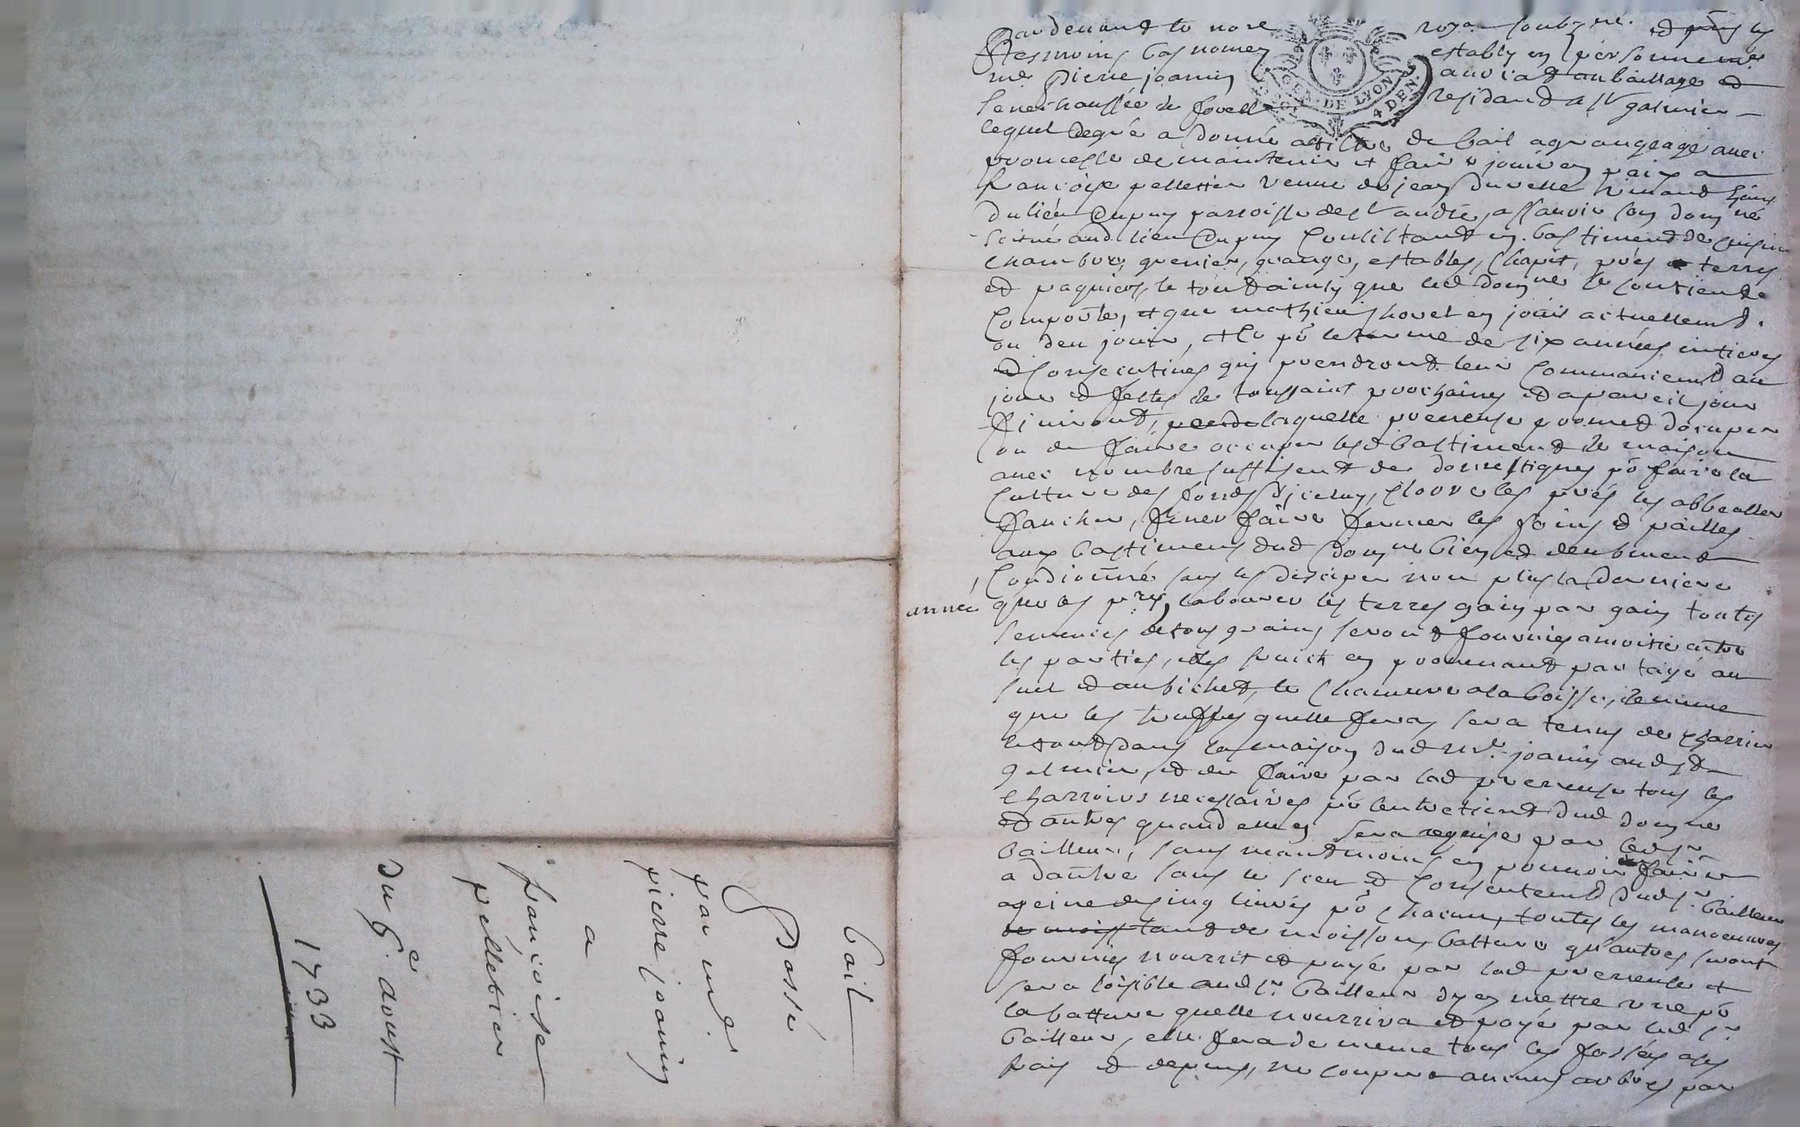 Bail
Passé
par me
pierre joanin
a
françoise
pelletier
du 6e aoust
1733
GEN. DE LYON
4 DEN.
Pardevant le nore royal soubzné. et pnts les
tesmoins bas nomez estably en personne
me Pierre joanin avocat au bailliage et
senechaussée de forest residant a st galmier
lequel degré a donné a tiltre de bail a grangeage avec
promesse de maintenir et faire jouir en paix a
françoise pelletier veuve de jean
du lieu Dupuy parroisse de st andré, assavoir son domne
scitué aud lieu Dupuy Consistant en bastiment de cuisine
chambre, grenier, grange, estables, Chapit, prés terres
et paquiers, le tout ainsy que led domne se contient et
Comporte, et que mathieu en jouit actuellement
ou deu jouir, et ce po le terme de six années entieres
et Consecutives qui prendront leur Commencemt au
jour et feste de toussaint prochaine et a pareil jour
finiront, laquelle preneuse promet d'occuper
ou de faire occuper lesd bastiments de maison
avec nombre suffisent de domestiques po faire la
Culture des fonds d'iceluy, Cloore les prés les abbealler
faucher, fener faire fermer les foins et pailles
aux bastimens dud domne bien et deubment
Condionné sans les disciper non plus la derniere
année que les pres, labourer les terres gain par gain toutes
semences de tous grains seront fournies a moitié entre
les parties, et les fruict en provenant partagé au
suel et au bichet, le Chanvre a la boisse, de mme
que les truffes quelle fera, sera tenus de charrier
le tout dans la maison dud me joanin aud st
galmier, et de faire par lad preneuse tous les
charrois necessaires po l'entretient dud domne
et autres quand elle en sera requise par led sr
bailleur, sans neantmoins en pouvoir faire
a d'autre sans le sceu et Consentemt dud sr bailleur
a peine de cinq livres po chacun, toutes les manoeuvres
tant de moissons batture qu'autres seront
fournies nourrit et payé par lad preneuse et
sera loisible aud sr bailleur d'y en mettre une po
la batture quelle nourrira et payé par led sr
bailleur, elle fera de meme tous les fossés a ses
frais et depens, ne coupera aucuns arbres par